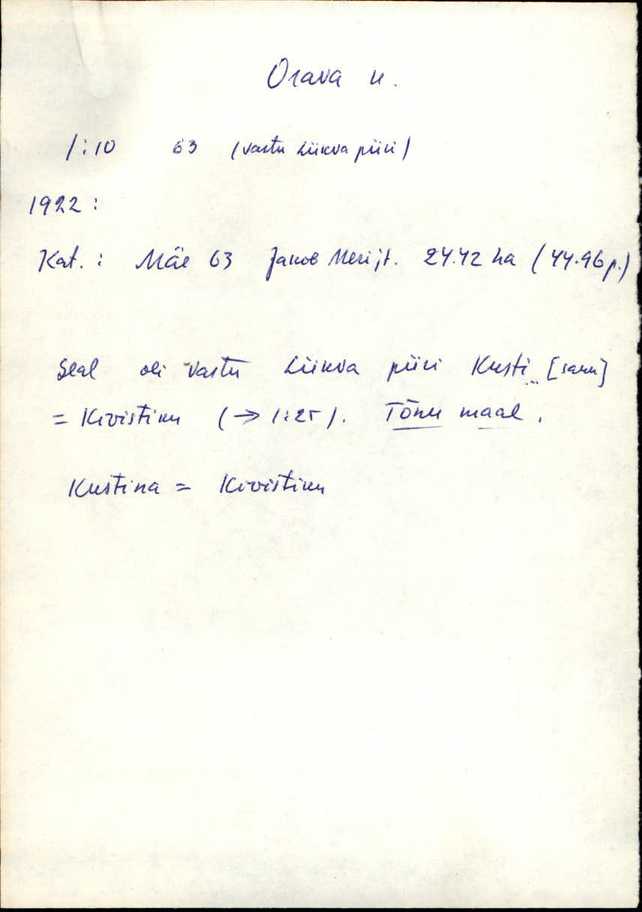 Orava k.
1:10 63 (vastu Liikva piiri)
1922:
Kat.: Mäe 63 Jakob Merijt. 24.42 ha (44.96 p.)
Seal oli vastu Liikva piiri Kusti [saru]
= Kivistiku (→ 1:25). Tõnu maal.
Kustina = Kivistiku